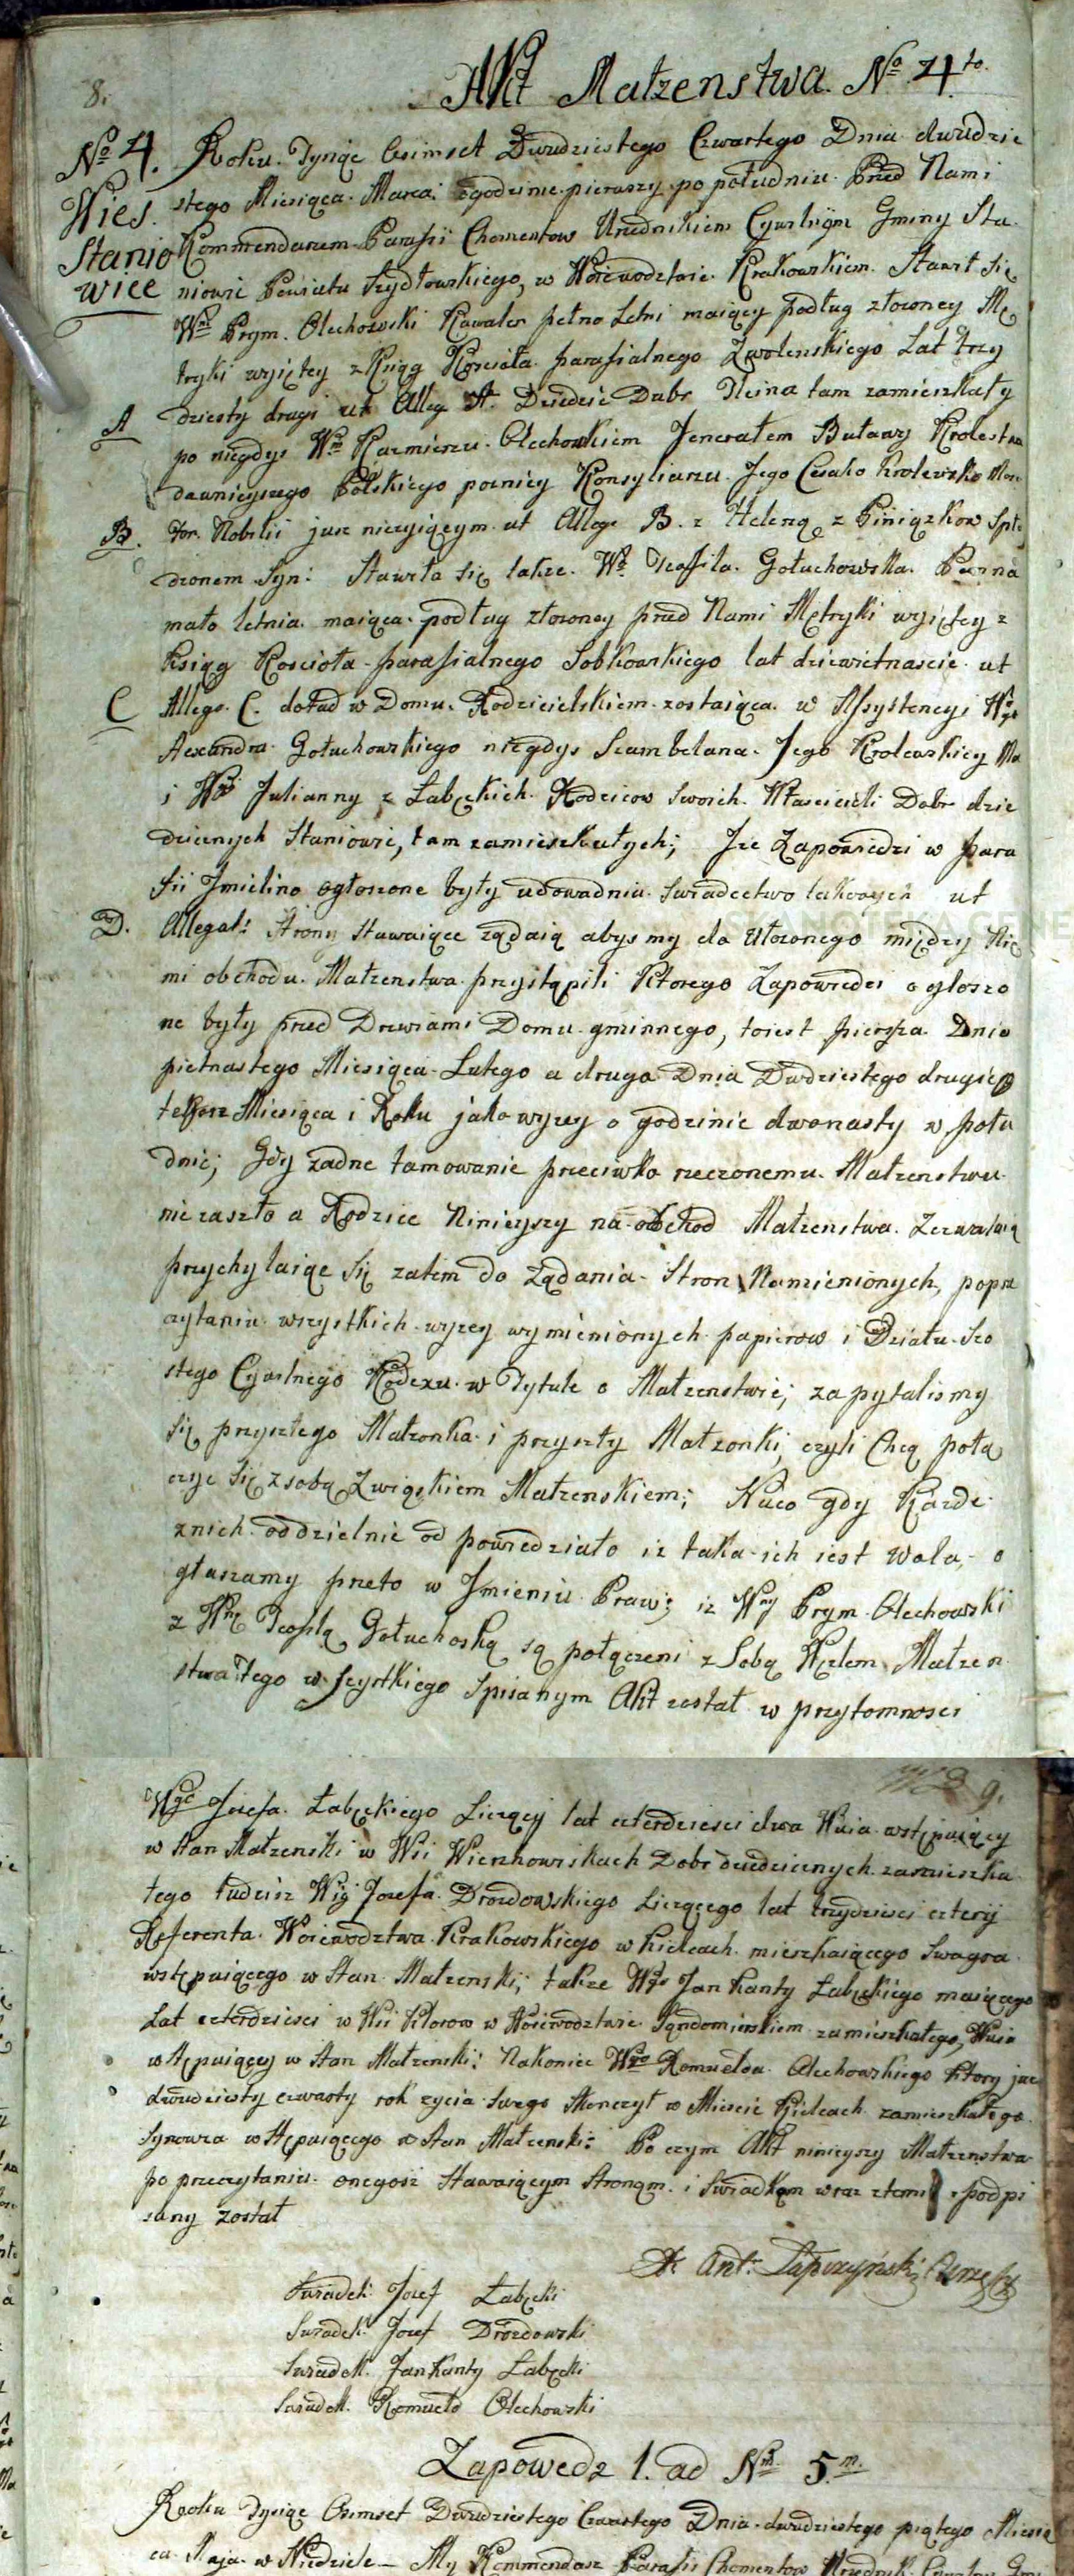 8.
Akt Małzenstwa. No 4to.
No 4.
Wies
Stanio
wice
Roku Tysiąc Osimset Dwudziestego Czwartego Dnia dwudzie
stego Miesiąca Marca o godzinie pierwszy po południu. Przed Nami
Kommendarzem Parafii Chomentow Urzednikiem Cywilnym Gminy Sta
niowic Powiatu Szydłowskiego, w Woiewodztwie Krakowskiem. Stawił się
Wny Prym. Olechowski Kawaler pełno Letni maiący podług złozoney Me
tryki wyiętey z Ksiąg Koscioła parafialnego Zwolenskiego Lat trzy
A
dziesty drugi ut Alleg A. Dziedzic Dobr tam zamieszkały
po niegdys Wm Kazmierzu Olechowskiem Jenerałem Buławy Krolestwa
dawnieyszego Polskiego pozniey Konsyliarzu Jego Cesarsko Krolewsko
B.
Nobilii juz niezyiącym ut Allega B. z Heleną z Piniązkow Spło
dzonem Syn: Stawiła się takze Wa Teofila Gołuchowska Panna
mało letnia maiąca podług złozoney przed Nami Metryki wyiętey z
Ksiąg Koscioła parafialnego Sobkowskiego lat dziewietnascie ut
C
Allega C. dotąd w Domu Rodzicielskiem zostaiąca w Assystencyi Wgo
Alexandra Gołuchowskiego niegdys Szambelana Jego Krolewskiey
i Wney Julianny z Łabęckich Rodzicow Swoich Włascicieli Dobr dzie
dzicznych Staniowic, tam zamieszkałych; Ize Zapowiedzi w Para
fii Imielino ogłoszone były udowadnia swiadectwo takowych ut
D.
Allegat: Strony Stawaiące ządaią abysmy do ułozonego między Nie
mi obchodu Małzenstwa przystąpili Ktorego Zapowiedzi ogłoszo
ne były przed Drzwiami Domu gminnego, toiest piersza Dnia
pietnastego Miesiąca Lutego a druga Dnia Dwdziestego drugiego
tegosz Miesiąca i Roku jako wyzey o godzinie dwonasty w połu
dnie; Gdy zadne tamowanie przeciwko rzeczonemu Małzenstwu
nie zaszło a Rodzice Ninieyszy na obchod Małzenstwa Zezwalaią
przychylaiąc się zatem do ządania Stron Namienionych, poprze
czytaniu wszystkich wyzey wymienionych papierow i Działu Szo
stego Cywilnego Kodexu w Tytule o Małzenstwie; zapytalismy
się przyszłego Małzonka i przyszły Małzonki, czyli Chcą połą
czyc się z sobą Związkiem Małzenskiem; Naco gdy Kazde
znich oddzielnie odpowiedziało iz taka ich iest Wola, o
głaszamy przeto w Imieniu Prawa; iz Wny Prym Olechowski
z Wną Teofilą Gołuchoską są połączeni z Sobą Węzłem Małzen
stwa Tego wszystkiego Spisanym Akt został w przytomnosci
9.
Wgo Jozefa Łabęckiego Liczący lat czterdziesci dwa Wuia wstępuiący
w Stan Małzenski w Wsi Wierzhowiskach Dobr dziedzicznych zamieszka
łego tudziesz Wgo Jozefa Drozdowskiego Liczącego lat trzydziesci cztery
Referenta Woiewodztwa Krakowskiego w Kielcach mieszkaiącego Swagra
wstępuiącego w Stan Małzenski; takze Wgo Jan Kanty Łabęckiego maiącego
Lat czterdziesci w Wsi w Woiewodztwie Sandomirskiem zamieszkałego, Wuia
wstępuiący w Stan Małzenski; Nakoniec Wgo Romualda Olechowskiego Ktory juz
dwudziesty czwarty rok zycia swego skonczył w Miescie Kielcach zamieszkałego
Synowca wstępuiącego w Stan Małzenski: Po czym Akt ninieyszy Małzenstwa
po przeczytaniu onegosz Stawaiącym Stronąm i Swiadkąm wraz ztemi podpi
sany został
X Ant: Łapczyński
Swiadek Jozef Łabęcki
Swiadek Jozef Drozdowski
Swiadek Jan Kanty Łabęcki
Swiadek Romuald Olechowski
Zapowedz 1. ad Nm 5m.
Rooku Tysiąc Osimset Dwudziestego Czwartego Dnia dwudziestego piątego Miesią
ca Maja w Niedziele My Kommendarz Parafii Chomentow